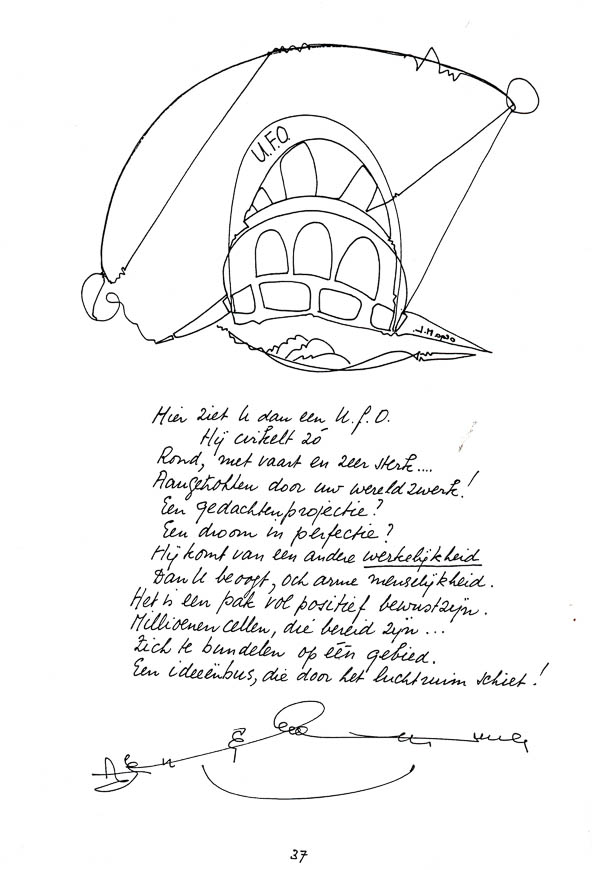 U.F.O.
Hier ziet U dan een U.f.O.
Hij cirkelt zó
Rond, met vaart en zeer sterk....
Aangetrokken door uw wereldzwerk!
Een gedachtenprojectie?
Een droom in perfectie?
Hij komt van een andere werkelijkheid
Dan U beoogt, och arme menselijkheid.
Het is een pak vol positief bewustzijn.
Millioenen cellen, die bereid zijn...
Zich te bundelen op één gebied.
Een ideeënbus, die door het luchtruim schiet!
37